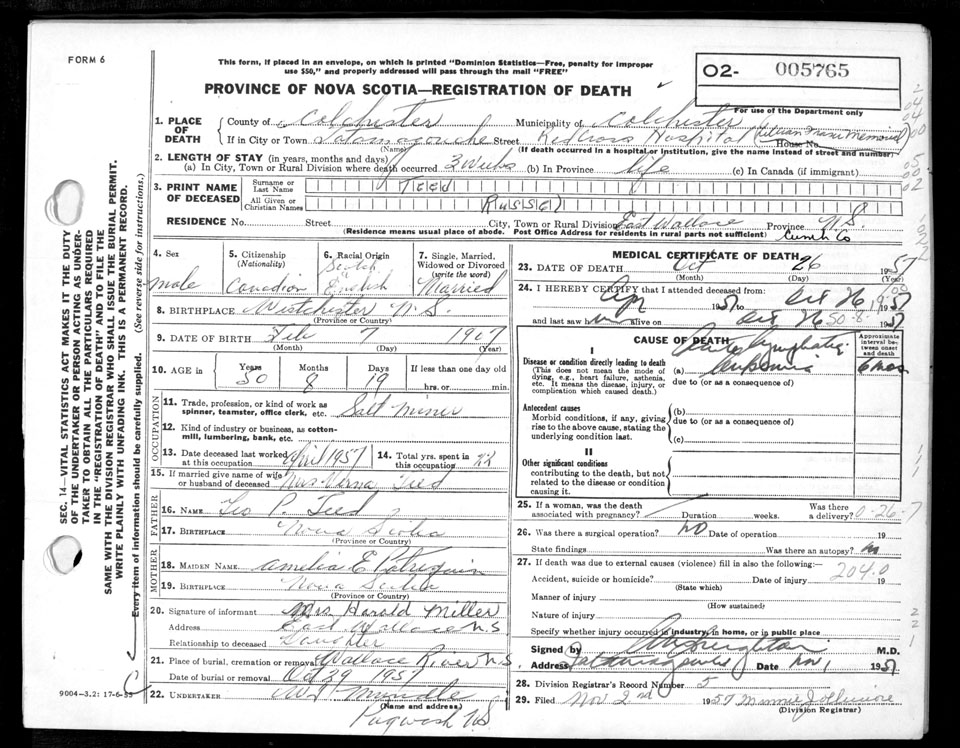 FORM 6
This form, if placed in an envelope, on which is printed "Dominion Statistics—Free, penalty for improper
use $50," and properly addressed will pass through the mail "FREE"
O2- 005765
PROVINCE OF NOVA SCOTIA—REGISTRATION OF DEATH
For use of the Department only
1. PLACE OF DEATH
County of Colchester Municipality of Colchester
If in City or Town Tatamagouche Street Red Cross Hospital Memorial House No.
(Name) (If death occurred in a hospital or institution, give the name instead of street and number)
2. LENGTH OF STAY (in years, months and days)
(a) In City, Town or Rural Division where death occurred 3 Weeks (b) In Province life (c) In Canada (if immigrant)
3. PRINT NAME OF DECEASED
Surname or Last Name Teed
All Given or Christian Names Russel
RESIDENCE No. Street City, Town or Rural Division East Wallace Province N.S.
(Residence means usual place of abode. Post Office Address for residents in rural parts not sufficient) Cumb Co
4. Sex
male
5. Citizenship
(Nationality)
Canadian
6. Racial Origin
Scotch
English
7. Single, Married,
Widowed or Divorced
(write the word)
Married
8. BIRTHPLACE Westchester N.S.
(Province or Country)
9. DATE OF BIRTH Feb 7 1907
(Month) (Day) (Year)
10. AGE in
Years Months Days If less than one day old
50 8 19 hrs. or min.
OCCUPATION
11. Trade, profession, or kind of work as
spinner, teamster, office clerk, etc. Salt Miner
12. Kind of industry or business, as cotton-
mill, lumbering, bank, etc.
13. Date deceased last worked
at this occupation April 1957
14. Total yrs. spent in
this occupation 22
15. If married give name of wife
or husband of deceased Mrs Verna Teed
FATHER
16. NAME Geo P. Teed
17. BIRTHPLACE Nova Scotia
(Province or Country)
MOTHER
18. MAIDEN NAME Amelia E Patriquin
19. BIRTHPLACE Nova Scotia
(Province or Country)
20. Signature of informant Mrs Harold Miller
Address East Wallace N.S
Relationship to deceased Daughter
21. Place of burial, cremation or removal Wallace River N.S.
Date of burial or removal Oct 29 1957
22. UNDERTAKER Mundle
(Name and address)
Pugwash NS
9004-3.2: 17-6-55
MEDICAL CERTIFICATE OF DEATH
23. DATE OF DEATH Oct 26 1957
(Month) (Day)
24. I HEREBY CERTIFY that I attended deceased from:
Apr 1957 to Oct 26 1957
and last saw him alive on Oct 26 50-8- 1957
CAUSE OF DEATH
Approximate
interval between
onset
and death
I
Disease or condition directly leading to death
(This does not mean the mode of
dying, e.g., heart failure, asthenia,
etc. It means the disease, injury, or
complication which caused death.)
(a) Acute lymphatic
leukemia 6 mos
due to (or as a consequence of)
Antecedent causes
Morbid conditions, if any, giving
rise to the above cause, stating the
underlying condition last.
(b)
due to (or as a consequence of)
(c)
II
Other significant conditions
contributing to the death, but not
related to the disease or condition
causing it.
25. If a woman, was the death
associated with pregnancy? Duration weeks. Was there a delivery? 0-26-7
26. Was there a surgical operation? NO Date of operation 19
State findings Was there an autopsy? no
27. If death was due to external causes (violence) fill in also the following:—
204.0
Accident, suicide or homicide? Date of injury 19
(State which)
Manner of injury
(How sustained)
Nature of injury
Specify whether injury occurred in industry, in home, or in public place
Signed by Creighton M.D.
Address Tatamagouche Date Nov 1 1957
28. Division Registrar's Record Number 5
29. Filed Nov 2nd 1957 Minnie
(Division Registrar)
SEC. 14—VITAL STATISTICS ACT MAKES IT THE DUTY
OF THE UNDERTAKER OR PERSON ACTING AS UNDER-
TAKER TO OBTAIN ALL THE PARTICULARS REQUIRED
IN THE "REGISTRATION OF DEATH" AND TO FILE THE
SAME WITH THE DIVISION REGISTRAR WHO SHALL ISSUE THE BURIAL PERMIT.
WRITE PLAINLY WITH UNFADING INK. THIS IS A PERMANENT RECORD.
Every item of information should be carefully supplied. (See reverse side for instructions.)